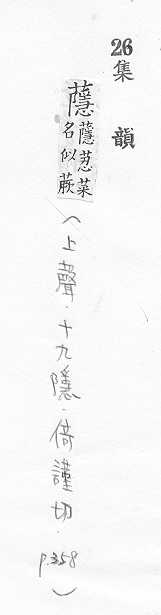 26
集韻
蘟 蘟荵菜
名似蕨
（上聲．十九隱．倚謹切．p.358）